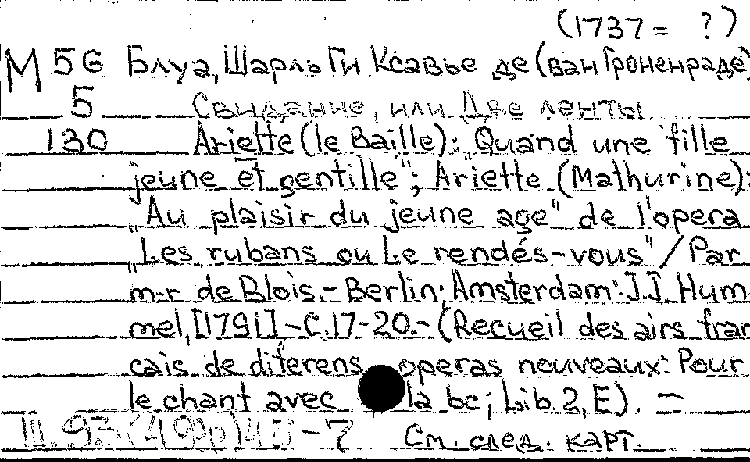 (1737 = ?)
М 56 Блуа, Шарль Ги Ксавье де (ван Гроненраде)
5 Свидание, или Две ленты
130 Ariette (le Baille): „Quand une fille
jeune et gentille"; Ariette (Mathurine):
„Au plaisir du jeune age" de l'opera
„Les rubans ou Le rendés-vous" / Par
m-r de Blois.- Berlin; Amsterdam: J.J. Hum
mel, [1791] - С. 17-20.- (Recueil des airs fran
cais de diferens operas nouveaux: Pour
le chant avec la bc; Lib. 2, E). -
-7 См. след. карт.